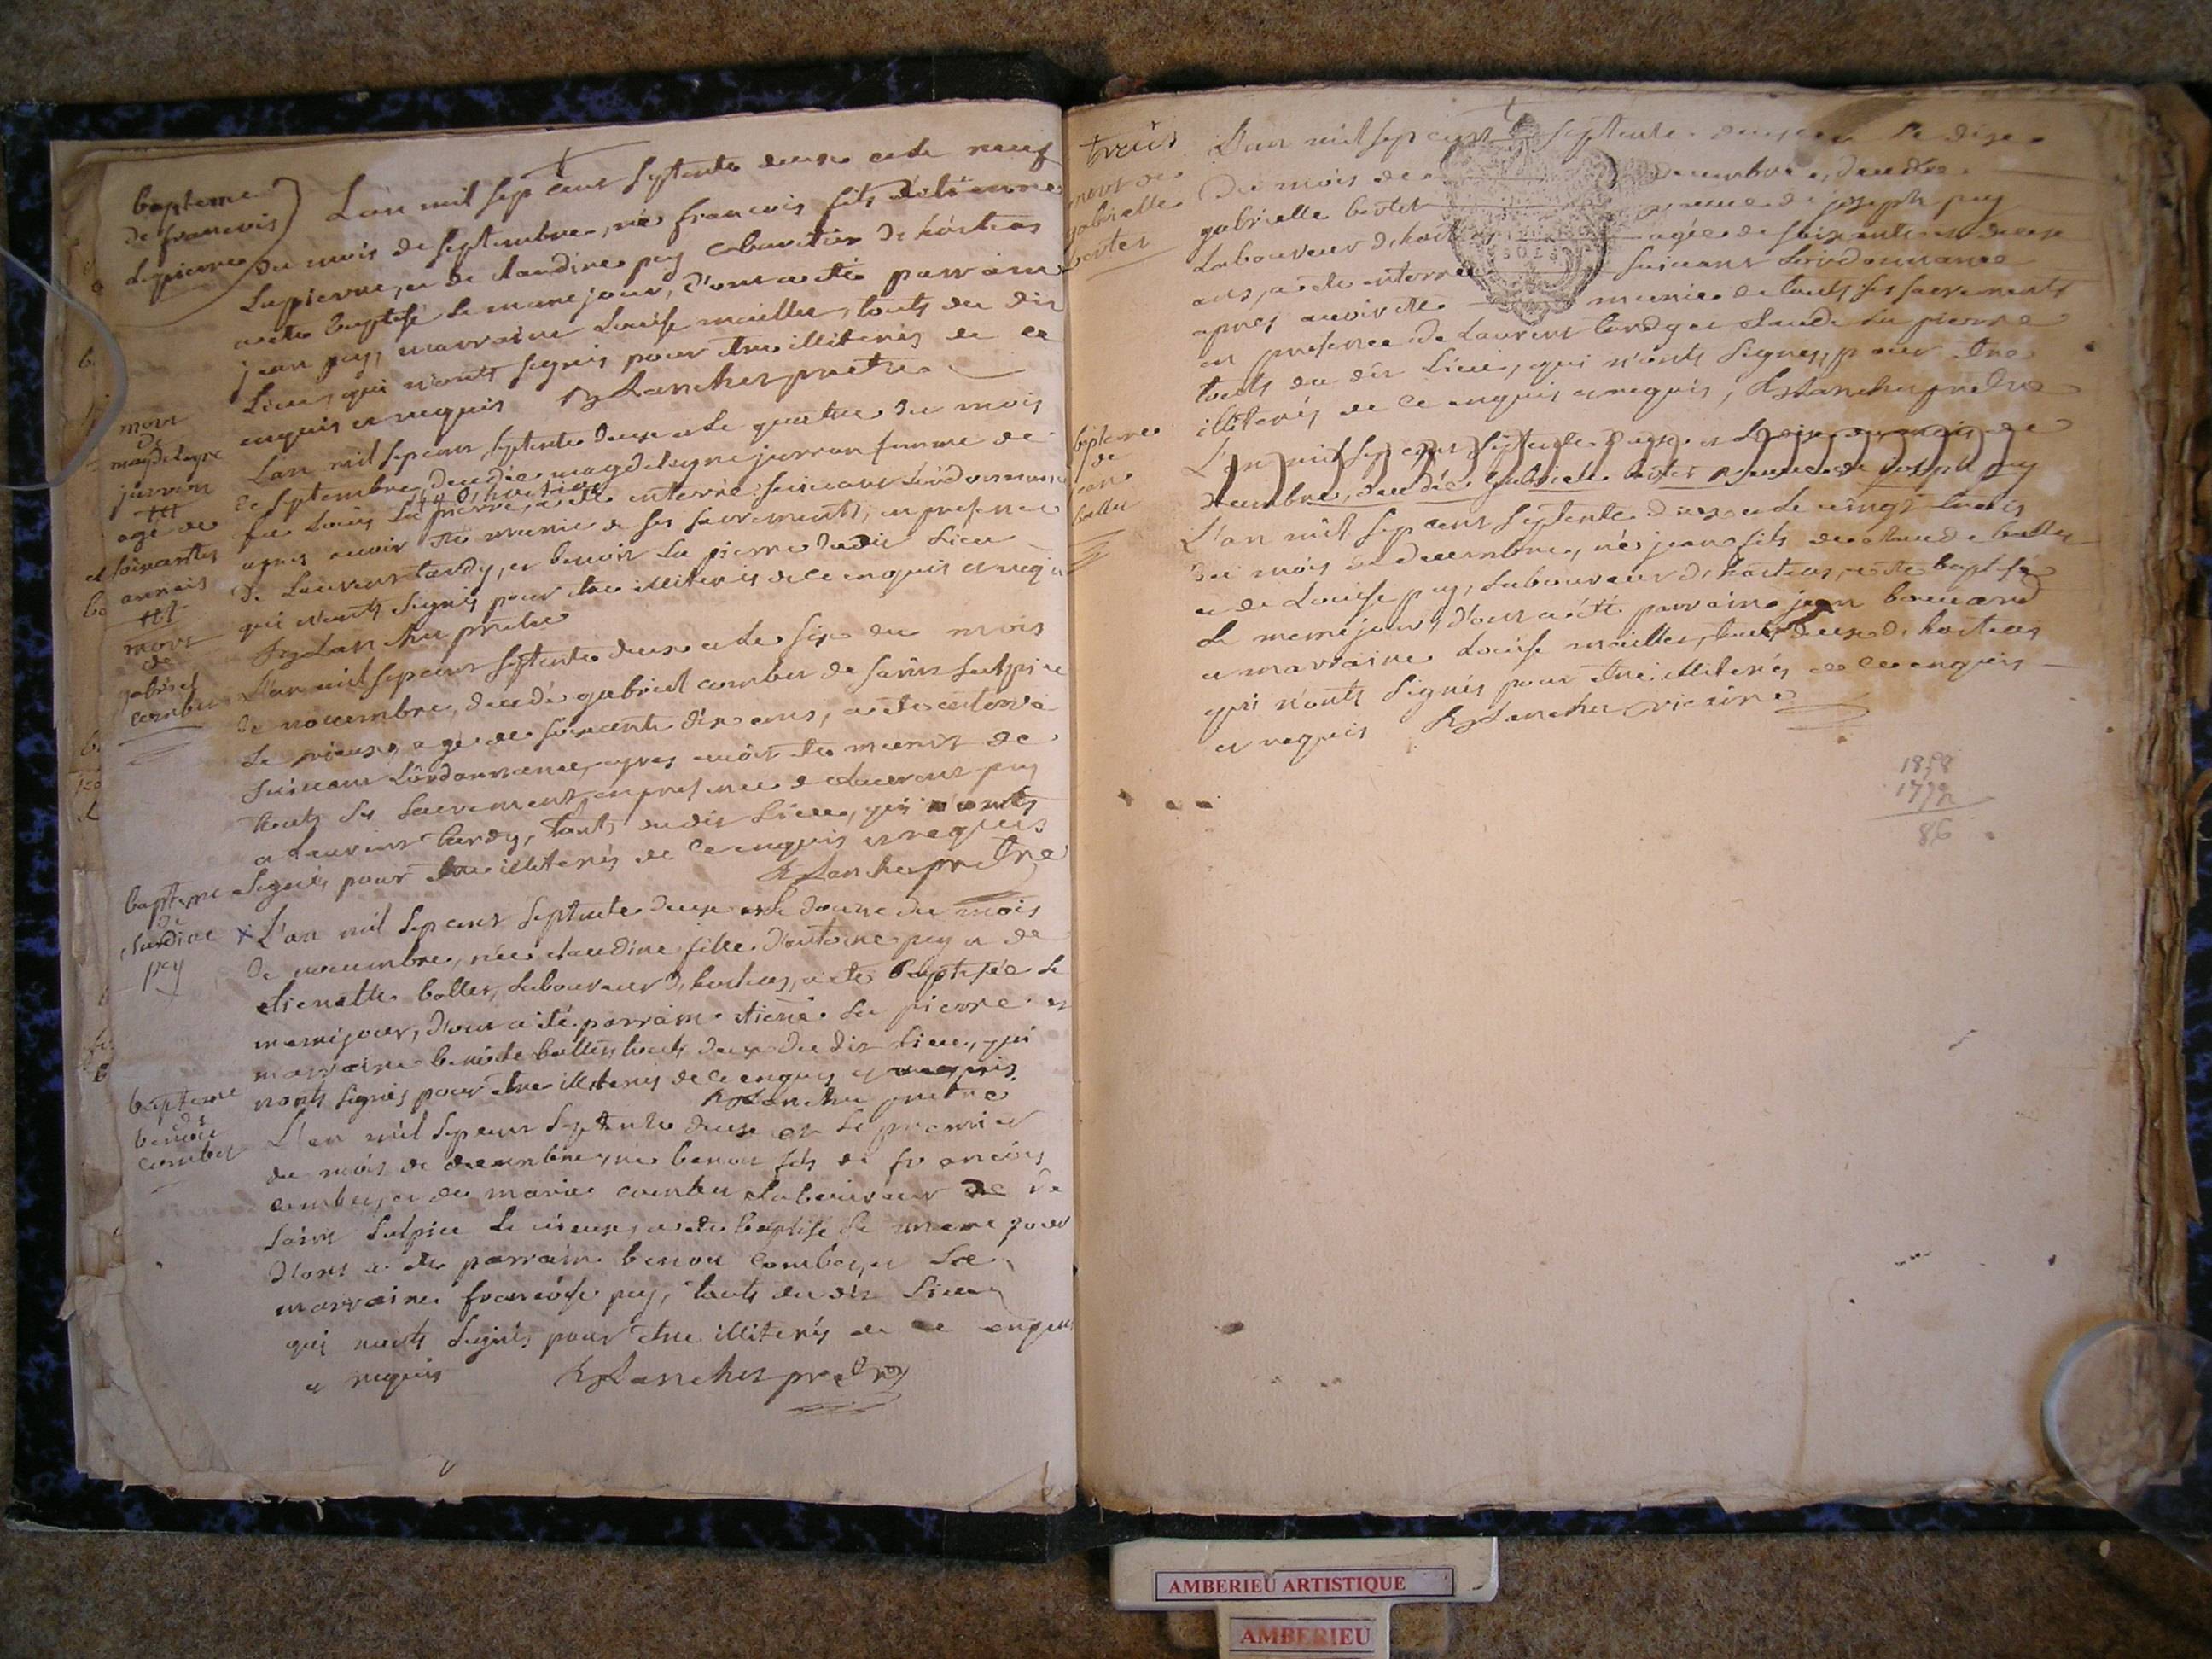 bapteme
de francois
Lapierre
L'an mil sept cens septente deux et le neuf
du mois de septembre, né francois fils d'étienne
Lapierre, et de claudine puy cabaretier d'hostias
a été baptisé le meme jour, d'ont a été parrain
jean puy, marraine Louise maillet, touts du dit
Lieu, qui n'onts signés pour etre illiterés de ce
enquis et requis Lancher pretre
mort
de
magdelayne
jurron
agé de
soixantes
annais
L'an mil sept cens septente deux et le quatre du mois
de septembre, decedée magdelayne jurron femme de
feu Louis La pierre, a été enterrée suivant L'ordonnance
apres avoir été munie de ses sacrements, en presence
de Laurens tardy, et benoit La pierre dudit Lieu
qui n'onts signés pour etre illiterés de ce enquis et requis
Lancher pretre
mort
de
gabriel
combet
L'an mil sept cens septente deux et le six du mois
de novembre, decedé gabriel combet de saint sulpice
le vieux, agé de soixante dix ans, a été enterré
suivant L'ordonnance, apres avoir été munis de
touts ses sacrements, en presence de Laurens puy
et Laurens tardy, touts dudit Lieu, qui n'onts
signés pour etre illiterés de ce enquis et requis
Lancher pretre
bapteme
de
claudine
puy
x L'an mil sept cens septente deux et le douze du mois
de novembre, née claudine fille d'antoine puy et de
etienette bollet, Laboureur d'hostias, a été baptisée le
meme jour, d'ont a été parrain etiene La pierre et
marraine benoite bollet touts deux du dit Lieu, qui
n'onts signés pour etre illiterés de ce enquis et requis
Lancher pretre
bapteme
de
benoit
combet
L'an mil sept cens septente deux et le premier
du mois de decembre, né benoit fils de francois
combet, et de marie combet Laboureur de
saint sulpice le vieux, a été baptisé le meme jour
d'ont a été parrain benoit combet, et
marraine francoise puy, touts du dit Lieu
qui n'onts signés pour etre illiterés de ce enquis
et requis Lancher pretre
trois
mort de
gabrielle
bertet
L'an mil sept cens septente deux et le dixe
du mois de decembre, decedée
gabrielle bertet veuve de joseph puy
Laboureur d'hostias agée de soixante et deux
ans, a été enterrée suivant L'ordonnance
apres avoir été munie de touts ses sacrements
en presence de Laurens tardy et claude La pierre
touts du dit Lieu, qui n'onts signés, pour etre
illiterés de ce enquis et requis, Lancher pretre
L'an mil sept cens septente deux et le dixe du mois de
decembre, decedée gabrielle bertet veuve de joseph puy
bapteme
de
jean
bollet
L'an mil sept cens septente deux et le vingt trois
du mois de decembre, né jean fils de claude bollet
et de Louise puy, Laboureur d'hostias, a été baptisé
le meme jour, d'ont a été parrain jean bouvard
et marraine Louise maillet, touts deux d'hostias
qui n'onts signés pour etre illiterés de ce enquis
et requis Lancher vicaire
1858
1772
86
AMBERIEU ARTISTIQUE
AMBERIEU